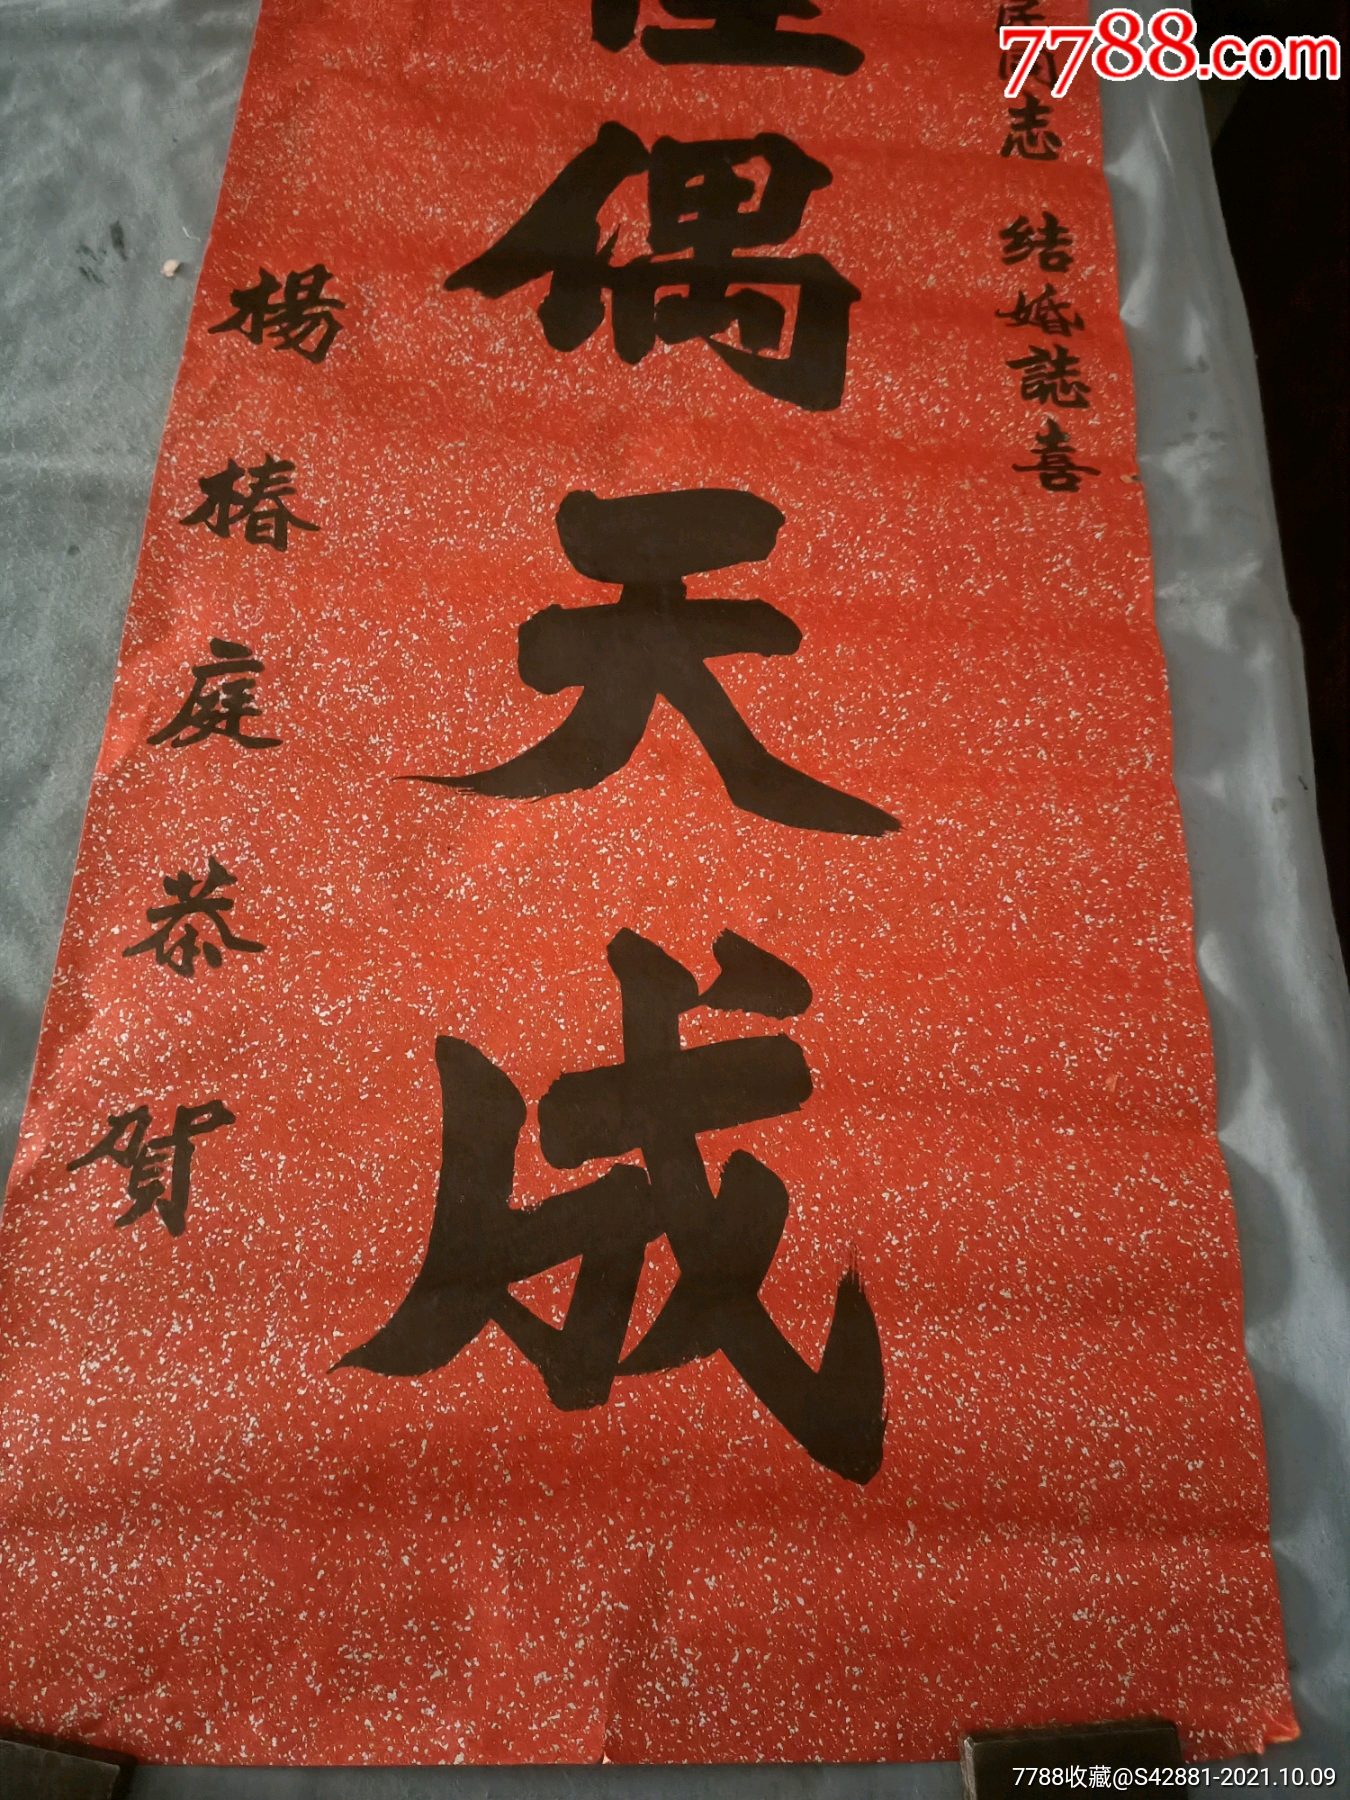 7788.com
同志 结婚誌喜
偶天成
楊椿庭恭賀
7788收藏@S42881-2021.10.09